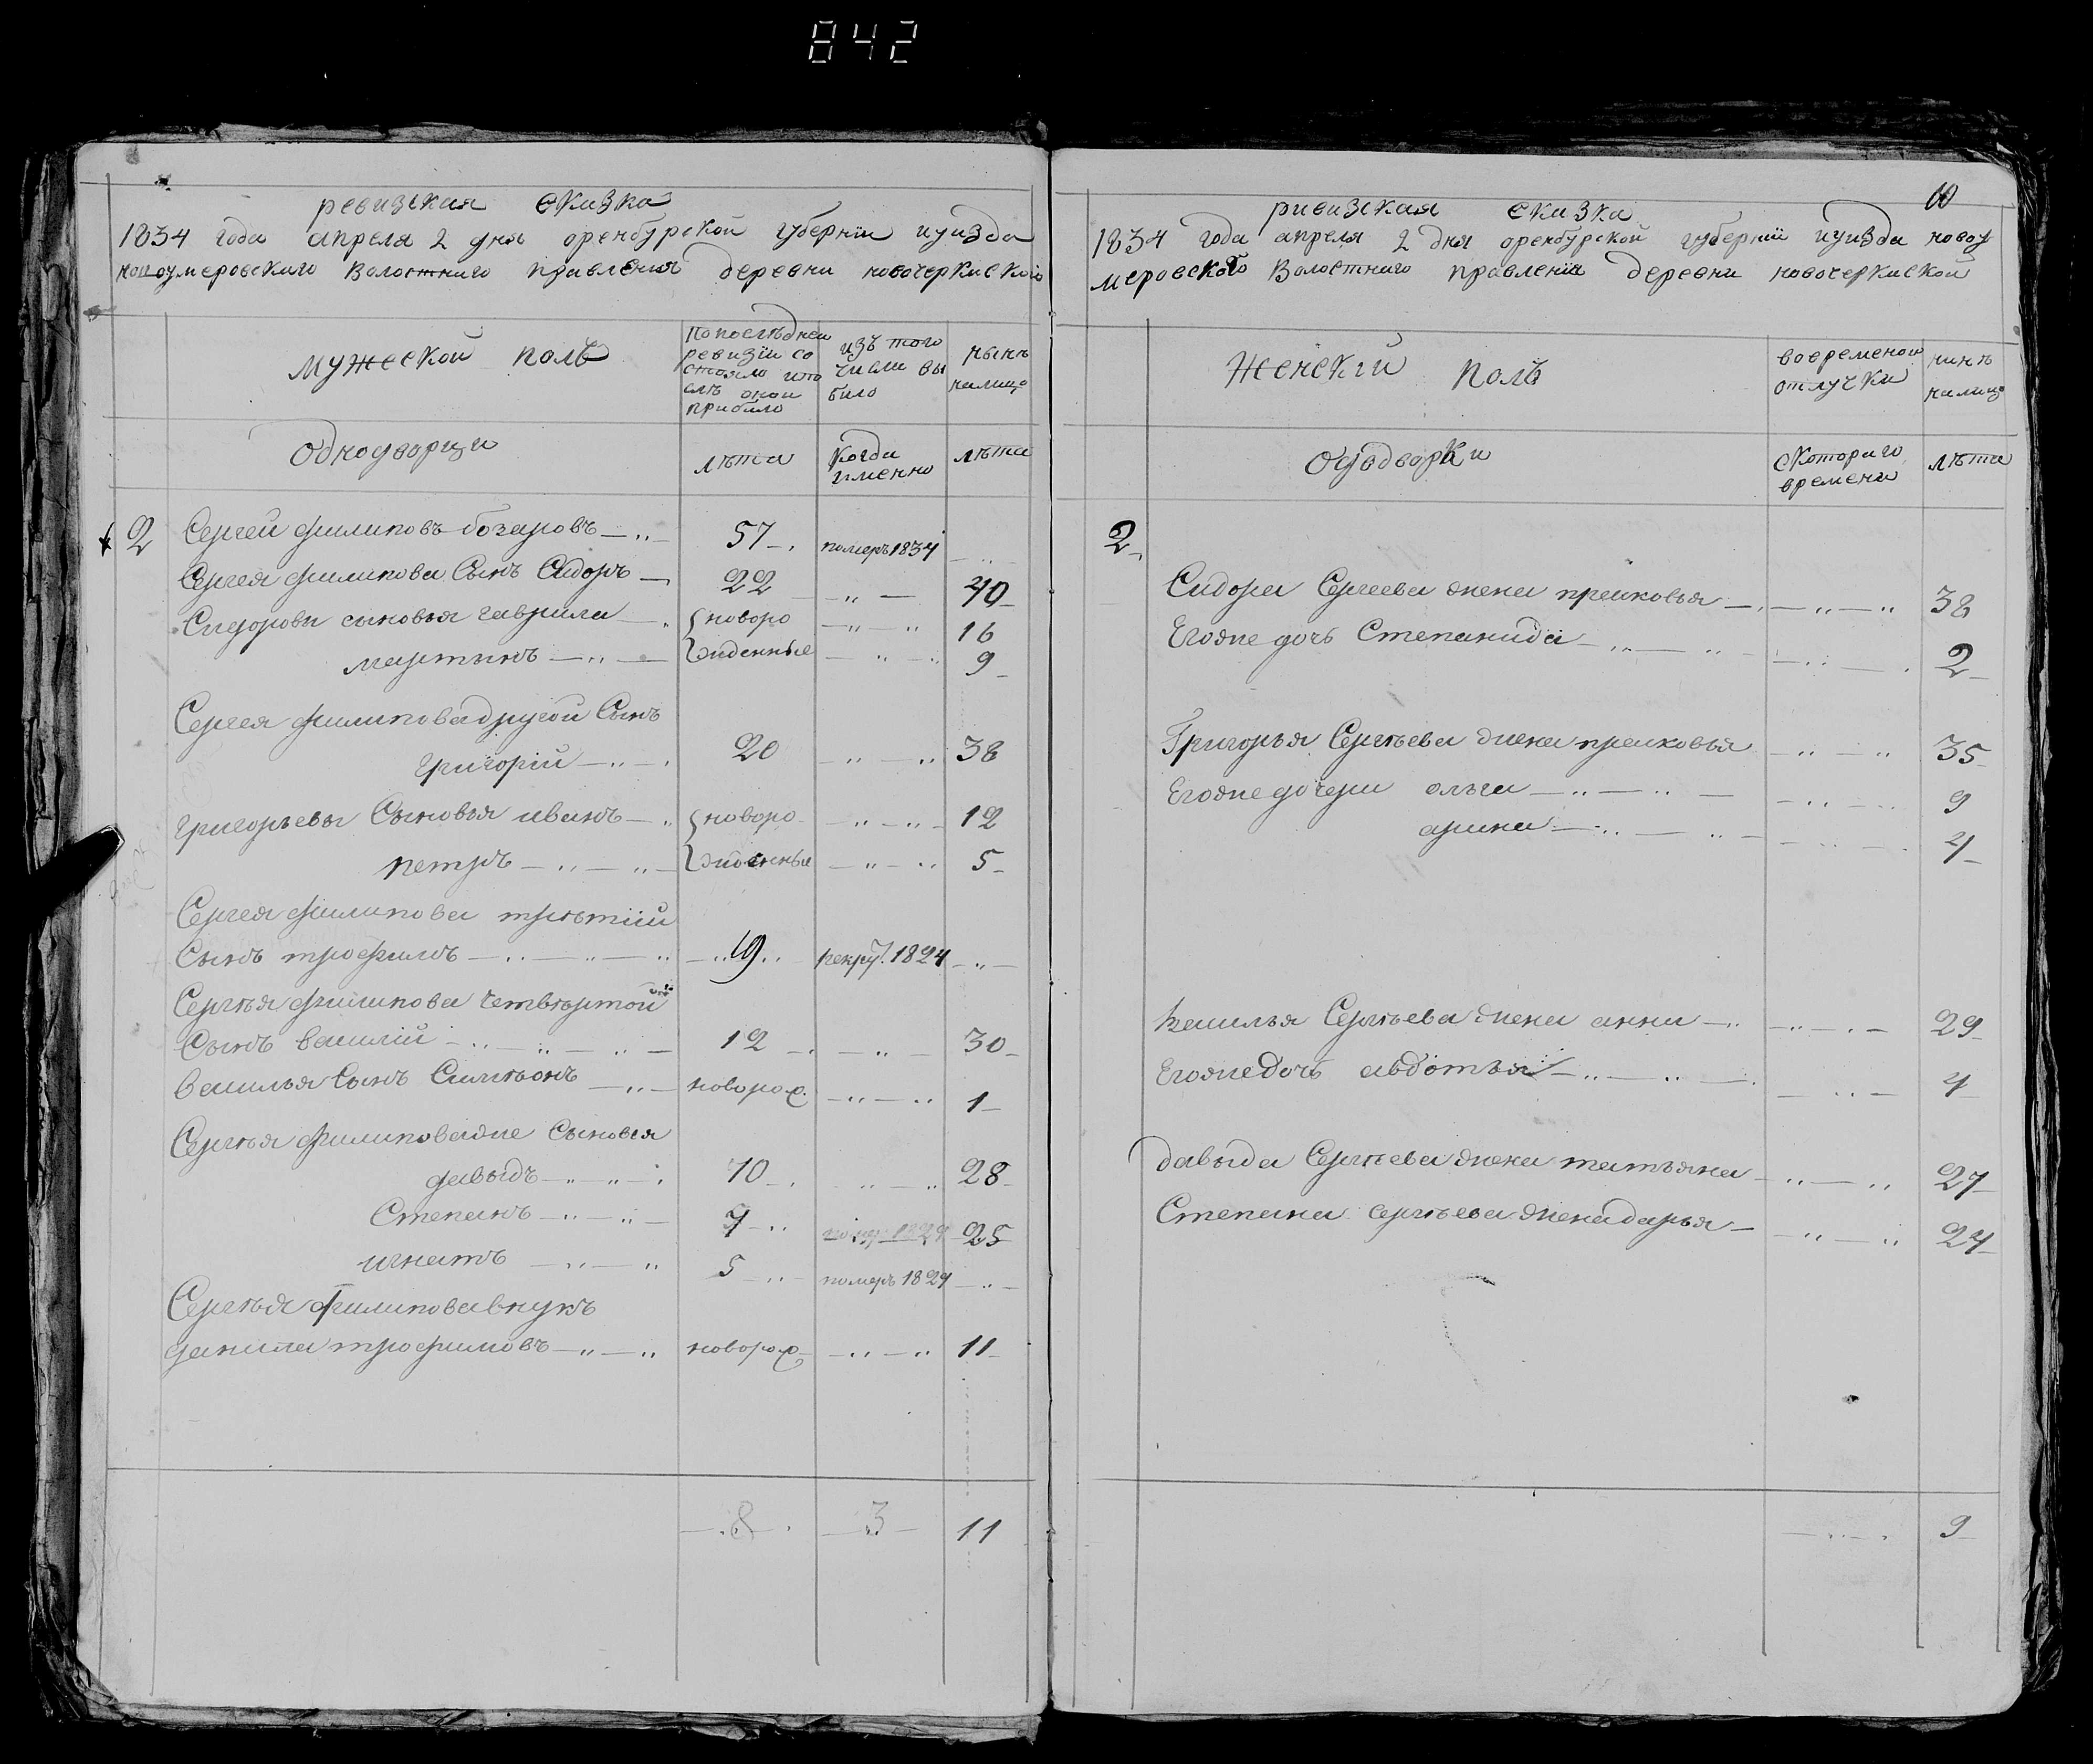 842
ревизская сказка
1834 года апреля 2 дня оренбурской губернiи иуизда
новоумеровскаго Волостнаго правления деревни новочеркаскаго
мужеской полъ
Попослѣдней
ревизiи со
стояло ипо
слѣ онои
прибыло
изъ того
числа вы
было
нынѣ
налицо
Однодворци
лѣта
Когда
имменно
лѣта
2 Сергей филиповъ бозаровъ 57 померъ 1834
Сергея филипова Сынъ Сидоръ 22 40
Сидоровы сыновья гаврила новоро 16
мартынъ жденные 9
Сергея филипова другой Сынъ
григорiй 20 38
григорьевы Сыновья иванъ новоро 12
петръ жденные 5
Сергея филипова трѣтiй
Сынъ трофимъ 19 рекру. 1824
Сергѣя филипова четвѣртой
Сынъ василiй 12 30
Василья Сынъ Симѣонъ новорож. 1
Сергѣя филиповаже Сыновя
давыдъ 10 28
Степанъ 7 25
игнатъ 5 померъ 1824
Сергѣя филипова внукъ
данила трофимовъ новорож 11
8 3 11
10
ривизская сказка
1834 года апреля 2 дня оренбурской губернiи иуизда новоу
меровского Волостнаго правленiя деревни новочеркаской
Женскiй полъ
вовременой
отлучки
нинѣ
налицо
Однодворки
скотораго
времени
лѣта
2
Сидора Сергеева жена прасковья 38
Егоже дочь Степанида 2
Григорья Сергѣева жена прасковья 35
Егоже дочери ольга 9
арина 4
Василья Сергѣева жена анна 29
Егоже дочь авдотья 4
давыда Сергѣева жена татьяна 27
Степана Сергѣева жена дарья 24
9